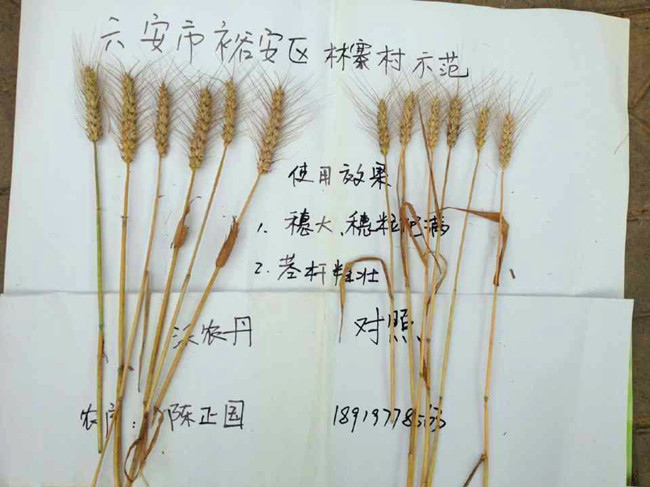 六安市裕安区林寨村示范
使用效果
1. 穗大、穗粒饱满
2. 茎杆粗壮
沃农丹 对照
农户：陈正国